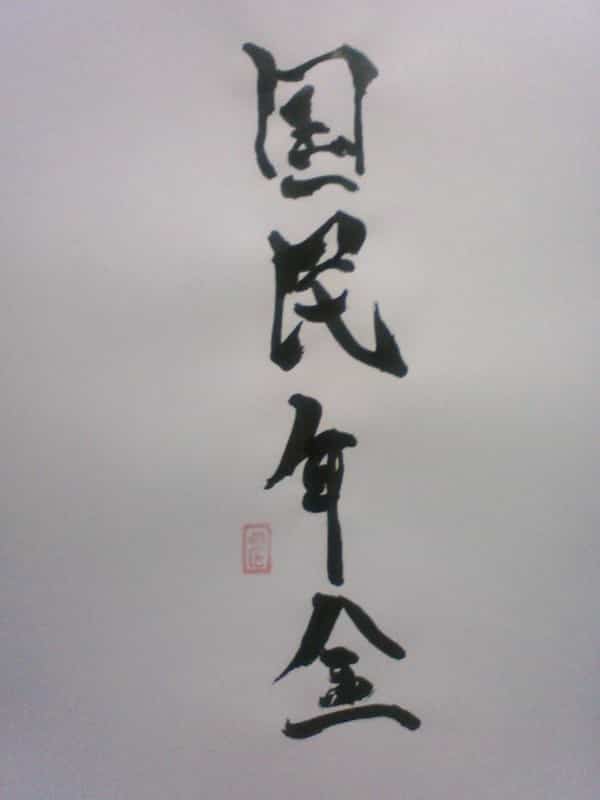 国民年金